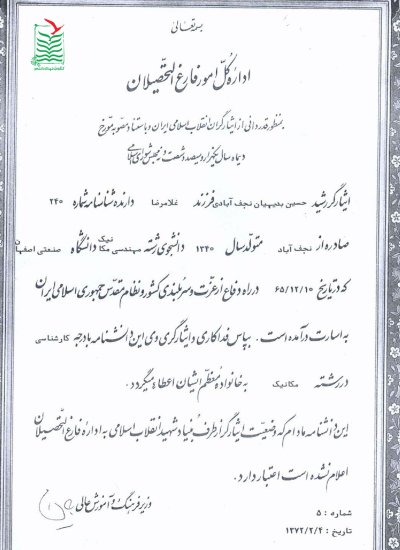 بسمه تعالی
اداره کل امور فارغ التحصیلان
بمنظور قدردانی از ایثارگران انقلاب اسلامی ایران و باستناد مصوبه مورخ
دیماه سال یکهزار و سیصد و شصت و نه مجلس شورای اسلامی
ایثارگر رشید حسین بدیهیان نجف آبادی فرزند غلامرضا دارنده شناسنامه شماره ۲۴۰
صادره از نجف آباد متولد سال ۱۳۴۰ دانشجوی رشته مهندسی مکانیک دانشگاه صنعتی اصفهان
که در تاریخ ۶۵/۱۲/۱۰ در راه دفاع از عزت و سربلندی کشور و نظام مقدس جمهوری اسلامی ایران
به اسارت درآمده است . بپاس فداکاری و ایثارگری وی این دانشنامه با درجه کارشناسی
در رشته مکانیک به خانواده معظم ایشان اعطاء میگردد .
این دانشنامه مادام که وضعیت ایثارگر از طرف بنیاد شهید انقلاب اسلامی به اداره فارغ التحصیلان
اعلام نشده است اعتبار دارد .
وزیر فرهنگ و آموزش عالی
شماره : ۵
تاریخ : ۱۳۷۲/۲/۴